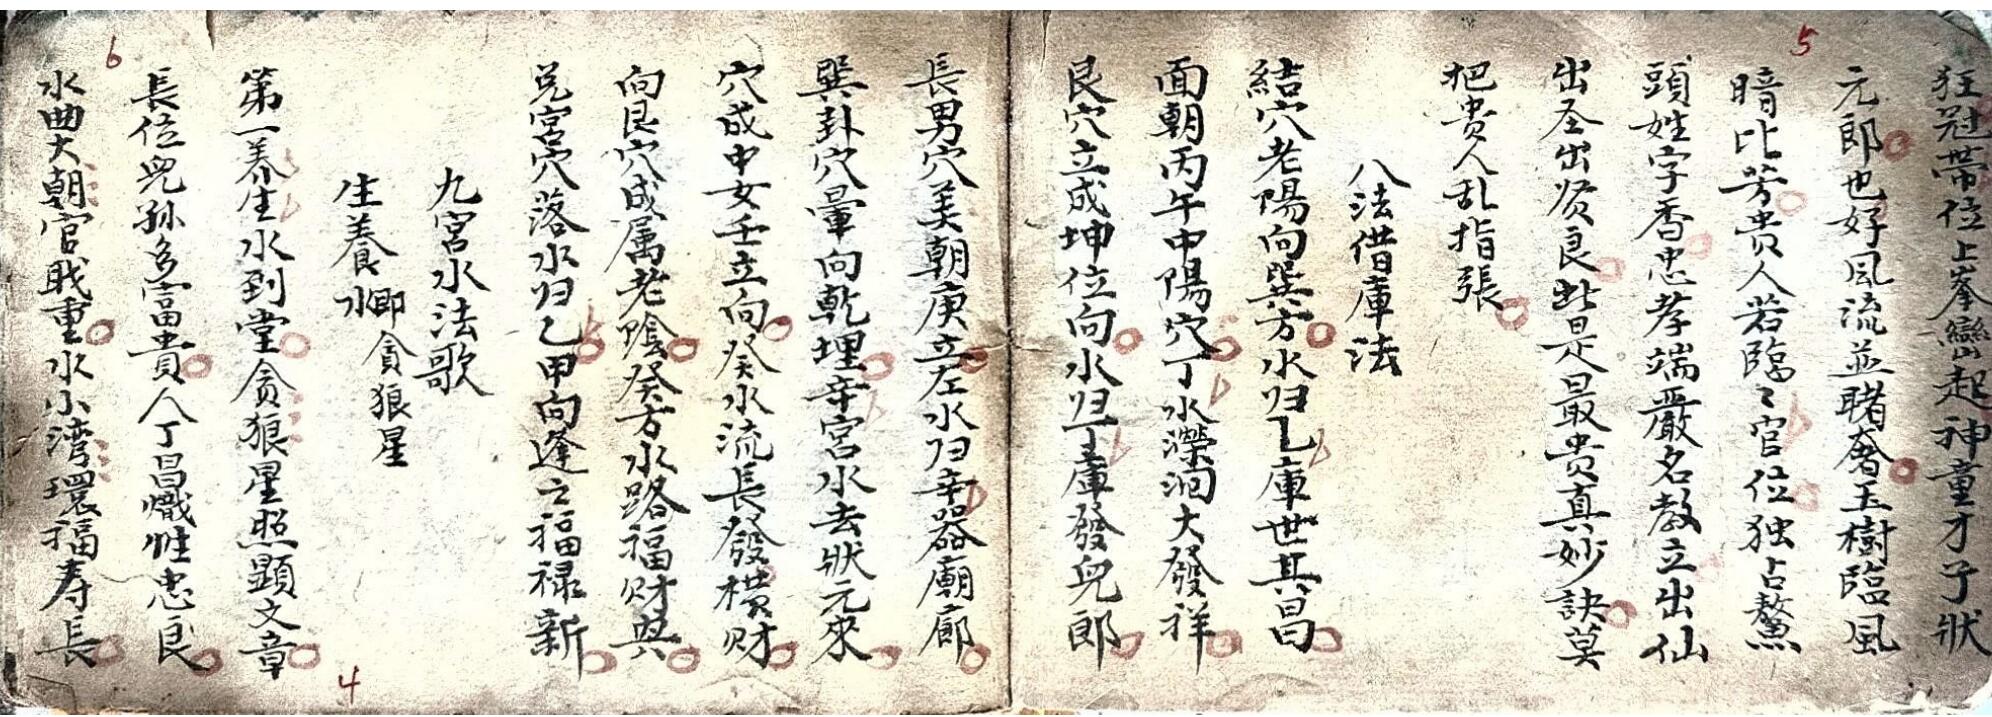 5
狂冠帶位上峯巒起神童才子狀
元郎也好風流並睹奢玉樹臨風
暗比芳貴人若臨〻官位独占鰲
頭姓字香忠孝端嚴名教立出仙
出圣出贤良此是最贵真妙訣莫
把贵人乱指張
八法借庫法
結穴老陽向巽方水归乙庫世其昌
面朝丙午中陽穴丁水濼洄大發祥
艮穴立成坤位向水归丁庫發兒郎
長男穴美朝庚立左水归辛器廟廊
巽卦穴暈向乾埋辛宮水去狀元來
穴成中女壬立向癸水流長發横财
向艮穴成属老陰癸方水路福财興
兑宮穴落水归乙甲向逢之福禄新
九宮水法歌
生養水 即貪狼星
第一养生水到堂贪狼星照顕文章
長位兒孙多富貴人丁昌熾性忠良
水曲大朝官戝重水小湾環福寿長
6
4